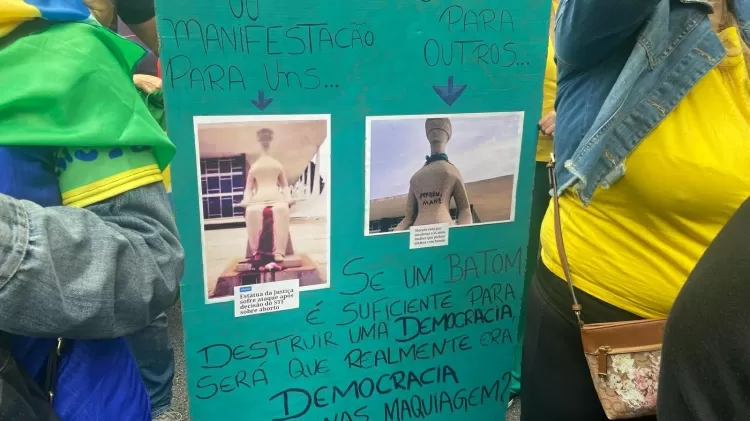 OU
MANIFESTAÇÃO
PARA UNS...
PARA
OUTROS...
PERDEU,
MANÉ
Estátua da Justiça
sofre ataque após
decisão do STF
sobre aborto
SE UM BATOM
É SUFICIENTE PARA
DESTRUIR UMA DEMOCRACIA,
SERÁ QUE REALMENTE ERA
DEMOCRACIA
MAQUIAGEM?